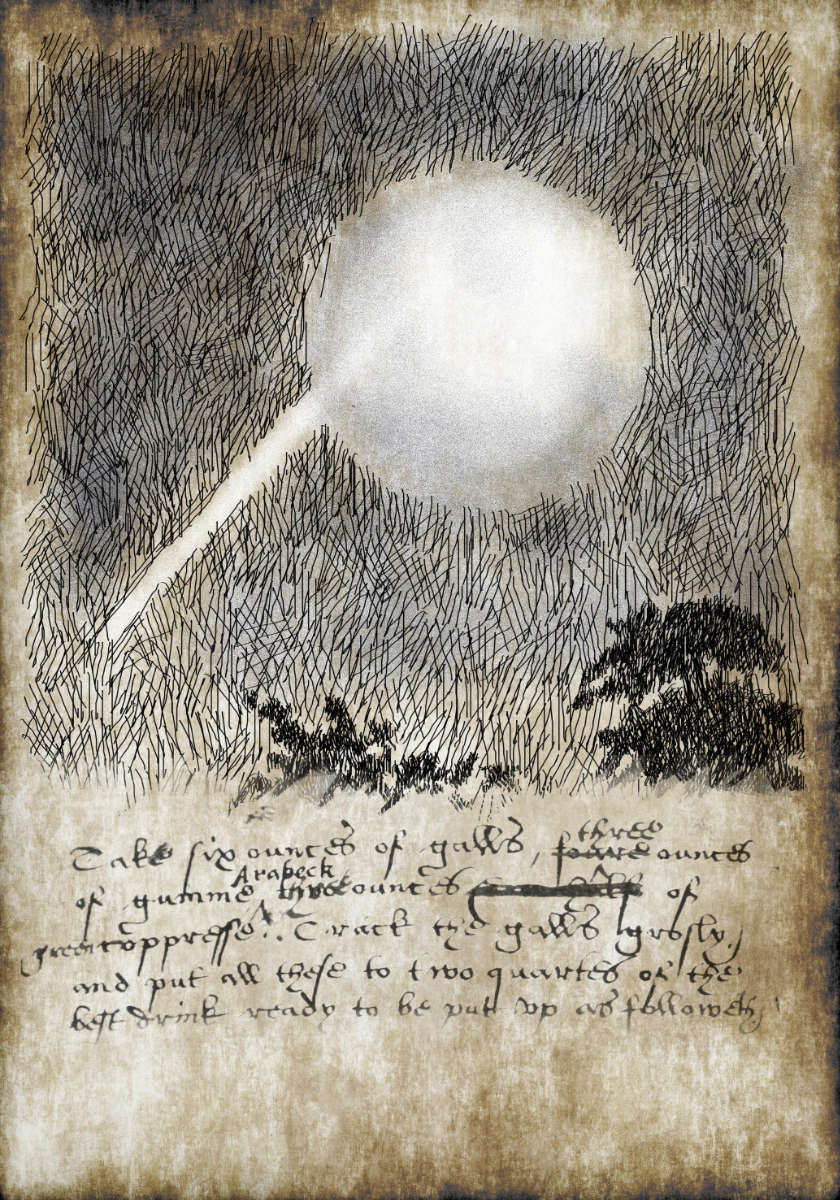 Take six ounces of galls, three foare ounces
of gumme Arabeck three ounces of
greencoppresse. Crack the galls grosly,
and put all these to two quartes of the
best drink ready to be put vp as followeth,